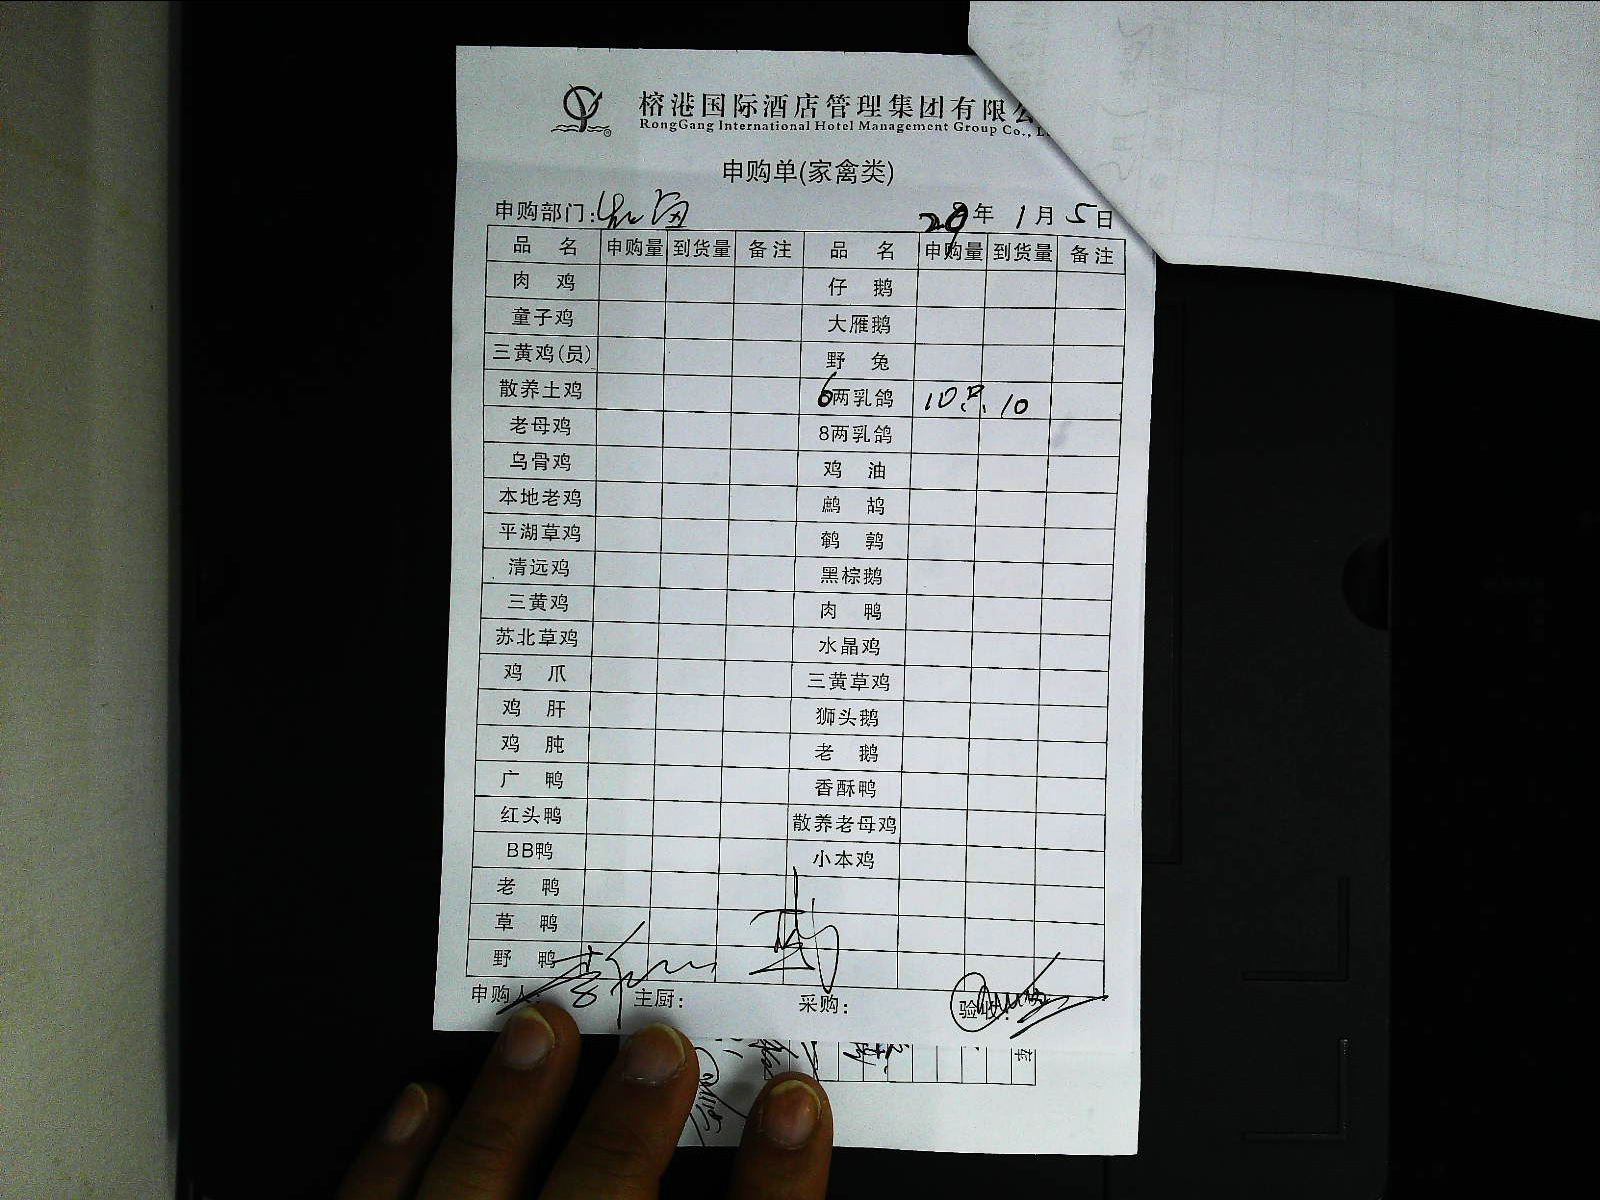 榕港国际酒店管理集团有限公
RongGang International Hotel Management Group Co., L
申购单(家禽类)
申购部门: 年 1月5日
品 名 申购量 到货量 备注 品 名 申购量 到货量 备注
肉 鸡 仔 鹅
童子鸡 大雁鹅
三黄鸡(员) 野 兔
散养土鸡 6两乳鸽 10只. 10
老母鸡 8两乳鸽
乌骨鸡 鸡 油
本地老鸡 鹧 鸪
平湖草鸡 鹌 鹑
清远鸡 黑棕鹅
三黄鸡 肉 鸭
苏北草鸡 水晶鸡
鸡 爪 三黄草鸡
鸡 肝 狮头鹅
鸡 肫 老 鹅
广 鸭 香酥鸭
红头鸭 散养老母鸡
BB鸭 小本鸡
老 鸭
草 鸭
野 鸭
申购人: 主厨: 采购: 验收:
车